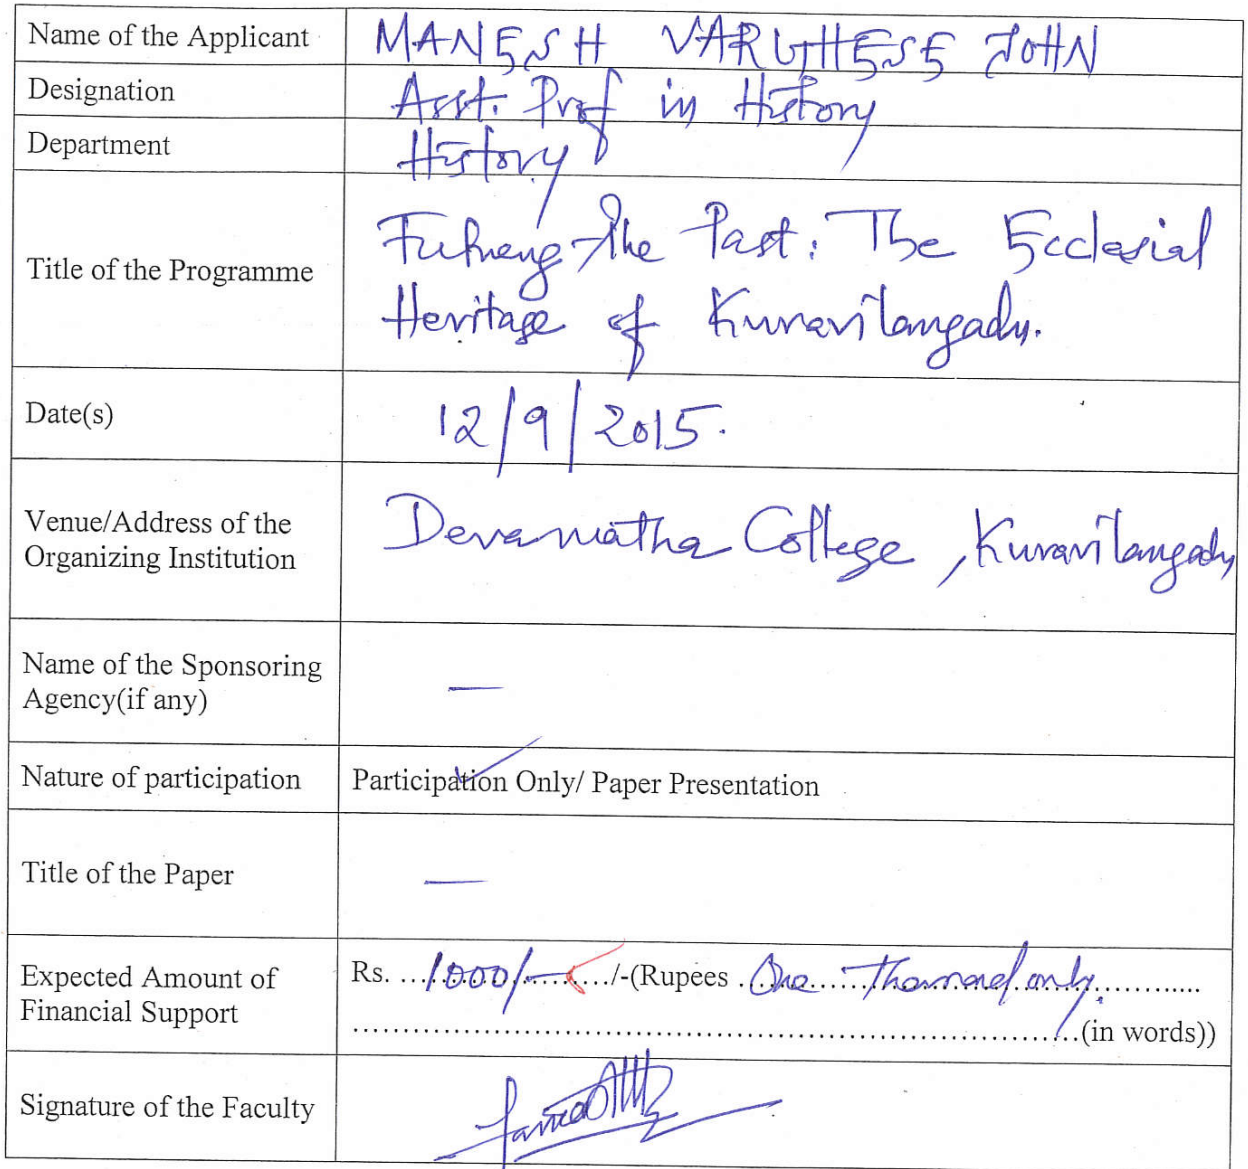 Name of the Applicant MANESH VARUGHESE JOHN
Designation Asst. Prof in History
Department History
Title of the Programme the Past: The Ecclesial
Heritage of Kuravilangadu.
Date(s) 12/9/2015.
Venue/Address of the
Organizing Institution Devamatha College, Kuravilangadu
Name of the Sponsoring
Agency(if any) —
Nature of participation Participation Only/ Paper Presentation
Title of the Paper —
Expected Amount of
Financial Support Rs. ....1000/-......./-(Rupees .One Thousand only.............
.................................................................(in words))
Signature of the Faculty